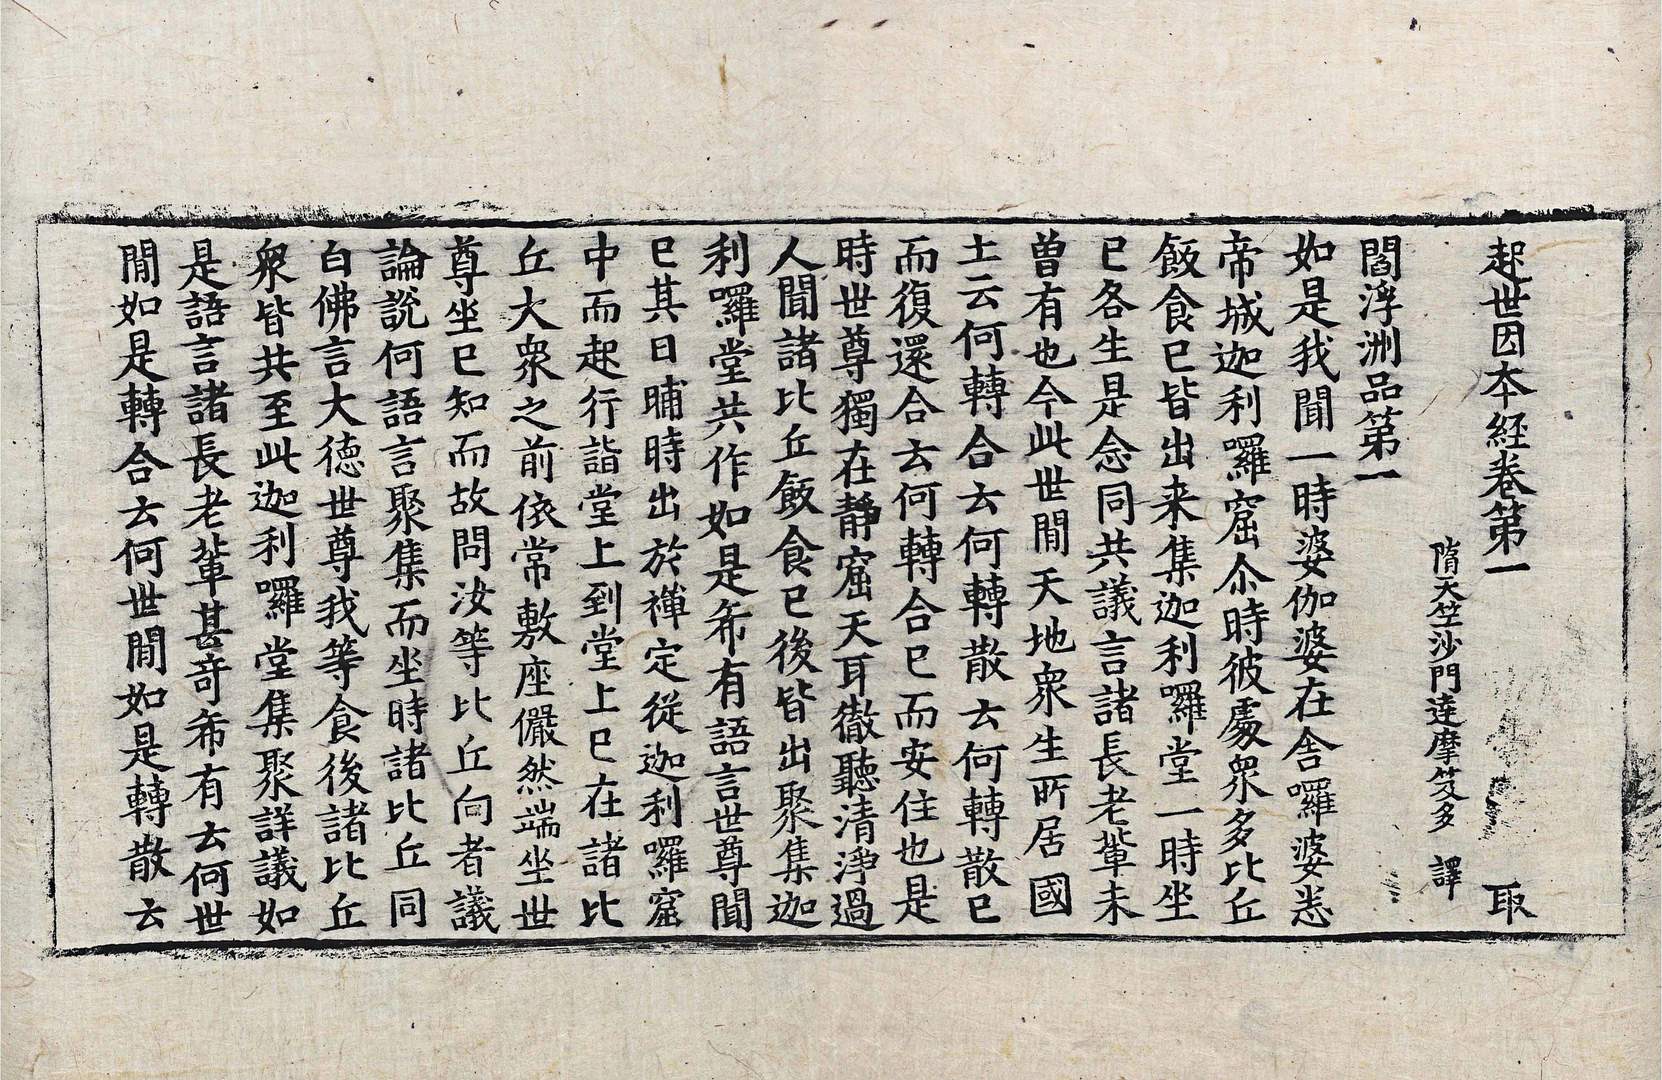 起世因本經卷第一 取
隋天竺沙門達摩笈多 譯
閻浮洲品第一
如是我聞一時婆伽婆在舍囉婆悉
帝城迦利囉窟尒時彼處衆多比丘
飯食已皆出来集迦利囉堂一時坐
已各生是念同共議言諸長老輩未
曽有也今此世閒天地衆生所居國
土云何轉合云何轉散云何轉散已
而復還合云何轉合已而安住也是
時世尊獨在靜窟天耳徹聽清淨過
人聞諸比丘飯食已後皆出聚集迦
利囉堂共作如是希有語言世尊聞
已其日晡時出於禪定從迦利囉窟
中而起行詣堂上到堂上已在諸比
丘大衆之前依常敷座儼然端坐世
尊坐已知而故問汝等比丘向者議
論說何語言聚集而坐時諸比丘同
白佛言大德世尊我等食後諸比丘
衆皆共至此迦利囉堂集聚詳議如
是語言諸長老輩甚奇希有云何世
閒如是轉合云何世閒如是轉散云